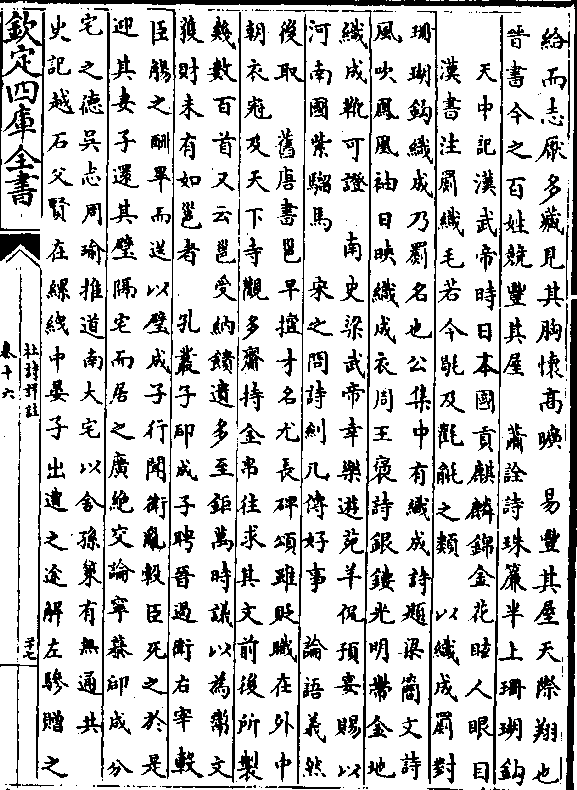 給而志厭多藏見其胸懷高曠　易豐其屋天際翔也
晉書今之百姓競豐其屋　蕭詮詩珠簾半上珊瑚鈎
天中記漢武帝時日本國貢麒麟錦金花眩人眼目
漢書注罽織毛若今毼及氍毹之類　以織成罽對
珊瑚鈎織成乃罽名也公集中有織成詩題梁簡文詩
風吹鳳凰袖日映織成衣周王褒詩銀鏤光明帶金地
織成靴可證　南史梁武帝幸樂遊苑羊侃預宴賜以
河南國紫騮馬　宋之問詩糾凡傳好事　論語義然
後取　舊唐書邕早擅才名尤長碑頌雖貶職在外中
朝衣冠及天下寺觀多齎持金帛往求其文前後所製
幾數百首又云邕受納饋遺多至鉅萬時議以為鬻文
獲財未有如邕者　孔叢子郈成子聘晉過衛右宰轂
臣觴之酣畢而送以璧成子行聞衛亂轂臣死之於是
迎其妻子還其璧隔宅而居之廣絶交論寧慕郈成分
宅之德吳志周瑜推道南大宅以舍孫策有無通共
史記越石父賢在縲絏中晏子出遭之途解左驂贈之
欽定四庫全書
杜詩詳註
卷十六